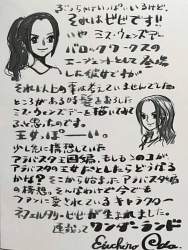 それはビビです!!
いや ミス・ウェンズデー
バロックワークスの
エージェントとして登場
した彼女ですが
それ以上の事は考えていませんでした
ところがある時髪をおろした
ミス・ウェンズデーを描いてみて
ふと思ったのです。
王女っぽーい。
少し先に構想していた
アラバスタ王国編、もしもこのコが
アラバスタの王女だとしたらどうなる
かな? そこから始まったアラバスタ編
の構想。そんなわけで今でも
ファンに愛されているキャラクター
ネフェルタリ・ビビが生まれました。
連載って ワンダーランド
Eiichiro Oda